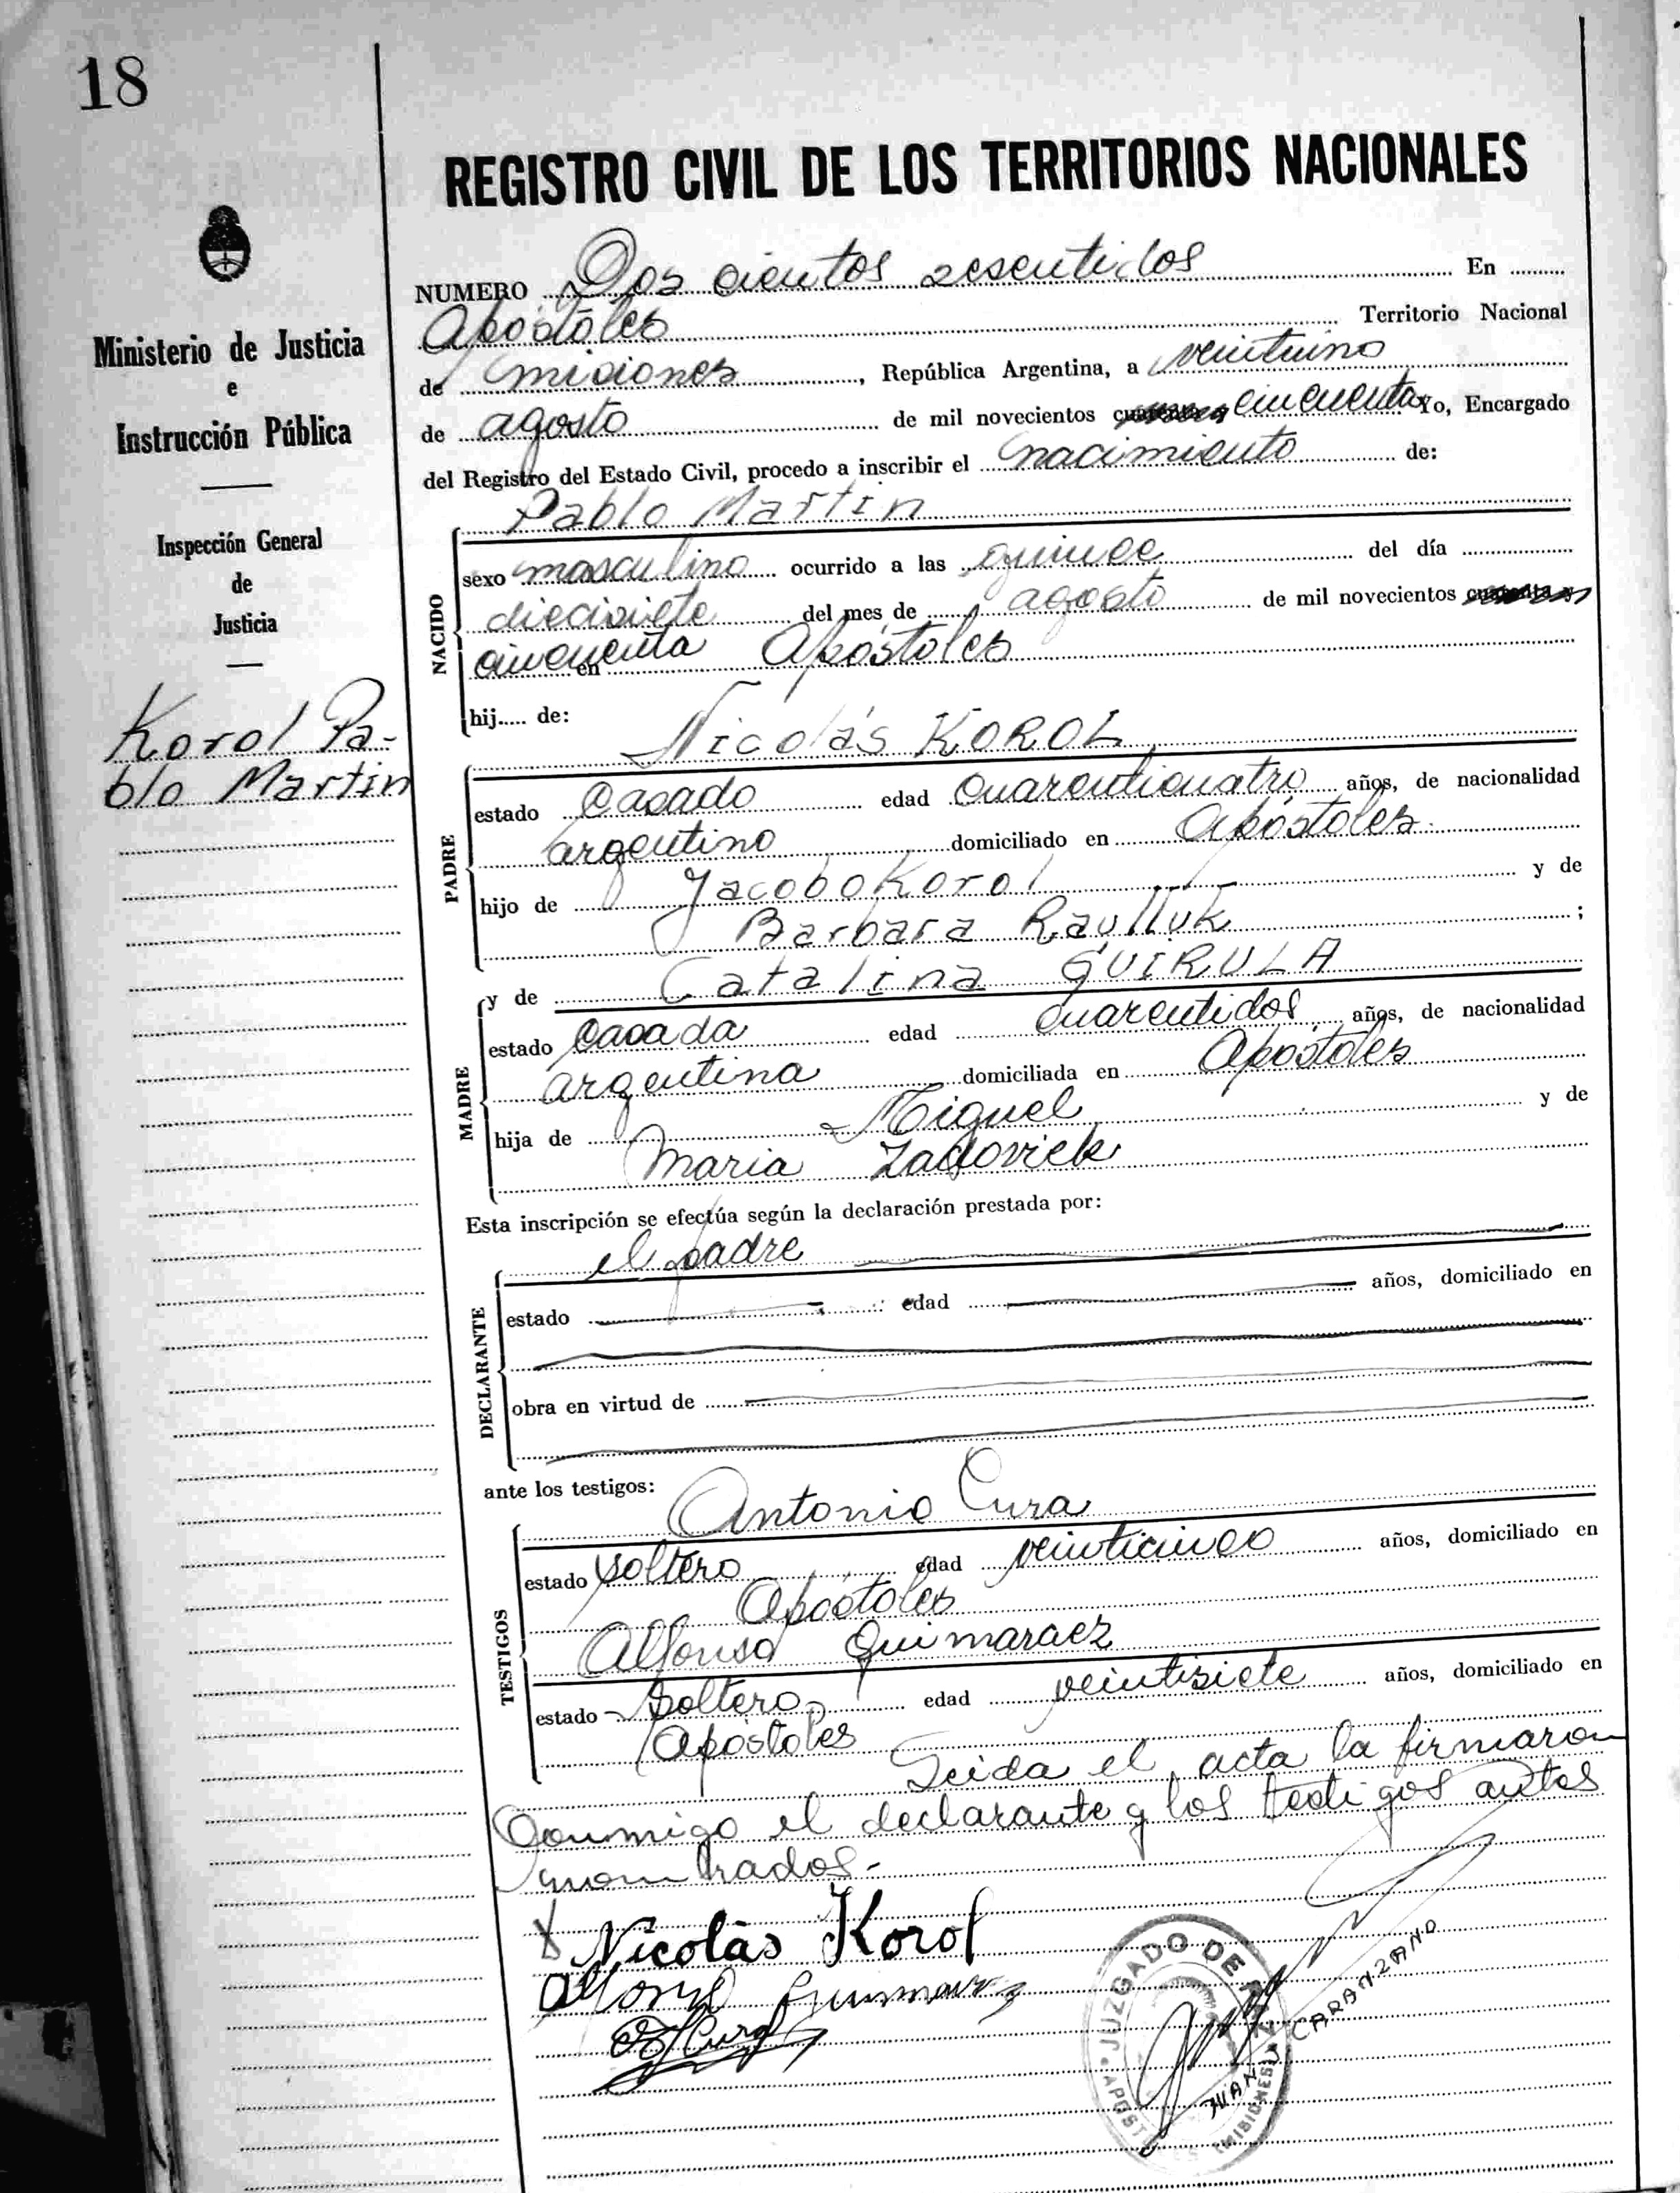 18
REGISTRO CIVIL DE LOS TERRITORIOS NACIONALES
Ministerio de Justicia
e
Instrucción Pública
Inspección General
de
Justicia
Korol Pa-
blo Martin
NUMERO Dos cientos sesentidos En
Apóstoles Territorio Nacional
de misiones, República Argentina, a veintuino
de agosto de mil novecientos cincuenta Yo, Encargado
del Registro del Estado Civil, procedo a inscribir el nacimiento de:
Pablo Martin
NACIDO
sexo masculino ocurrido a las quince del día
diecisiete del mes de agosto de mil novecientos
cincuenta en Apóstoles
hij..... de:
Nicolás KOROL
PADRE
estado Casado edad cuarenticuatro años, de nacionalidad
argentino domiciliado en Apóstoles
hijo de Jacobo Korol y de
Barbara ;
y de Catalina GUIRULA
MADRE
estado Casada edad cuarentidos años, de nacionalidad
argentina domiciliada en Apóstoles
hija de Miguel y de
Maria
Esta inscripción se efectúa según la declaración prestada por:
el padre
DECLARANTE
estado edad años, domiciliado en
obra en virtud de
ante los testigos:
Antonio Cura
TESTIGOS
estado soltero edad veinticinco años, domiciliado en
Apóstoles
Alfonso Guimaraez
estado soltero edad veintisiete años, domiciliado en
Apóstoles Leida el acta la firmaron
conmigo el declarante y los testigos antes
nombrados.-
Nicolás Korol
JUZGADO DE
JUAN CARANZANO
(MISIONES)